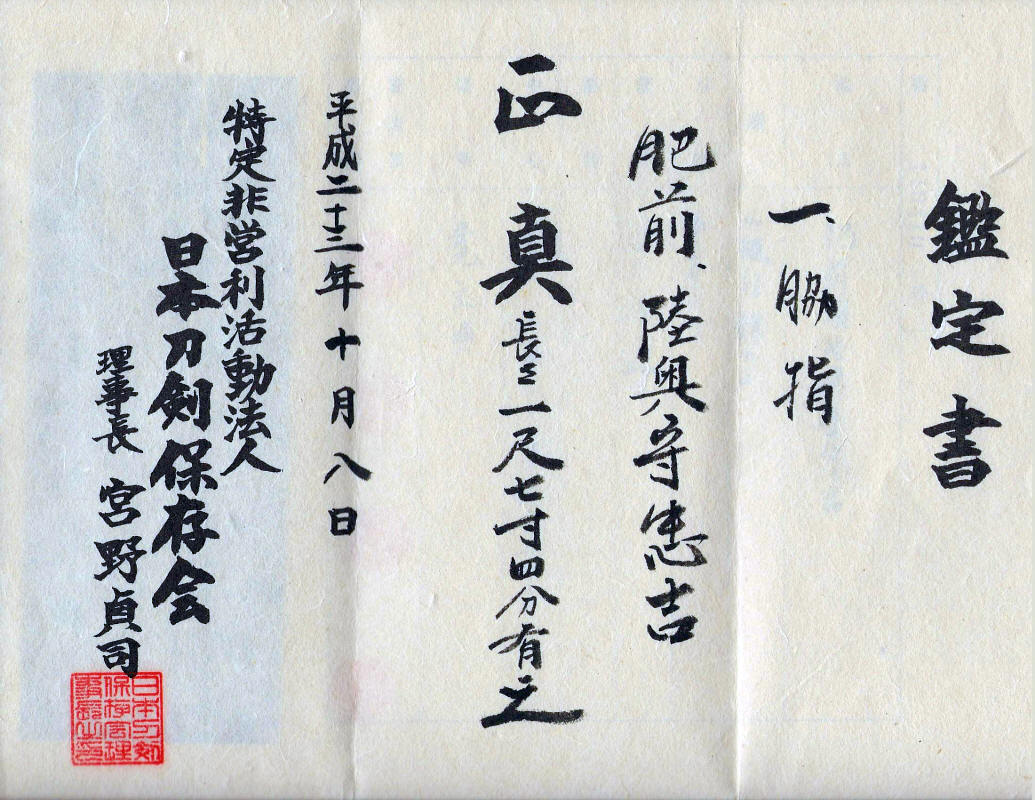 鑑定書
一、脇指
肥前、陸奥守忠吉
正真
長さ一尺七寸四分有之
平成二十三年十月八日
特定非営利活動法人
日本刀剣保存会
理事長 宮野貞司